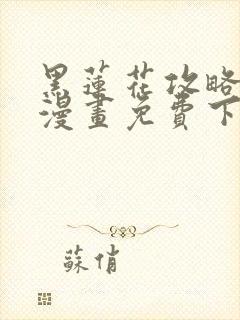 黑蓮花攻略
漫畫免費下
蘇俏